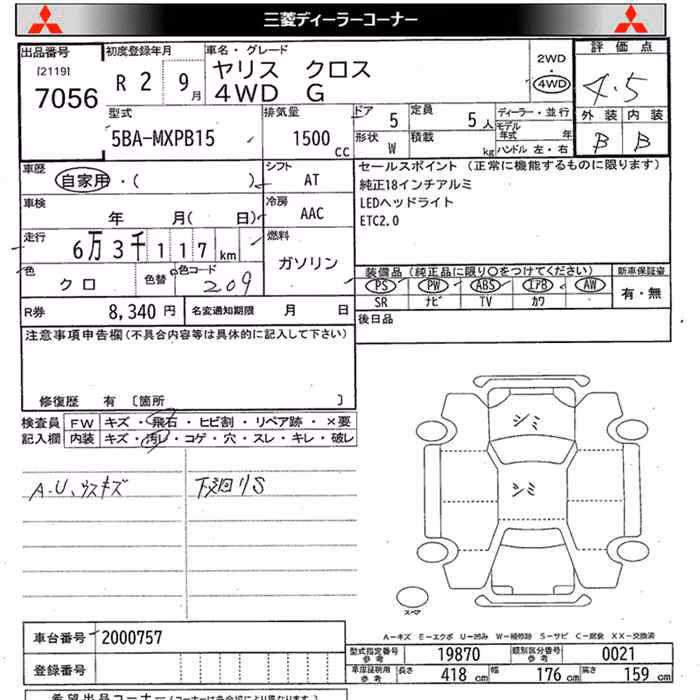 三菱ディーラーコーナー
出品番号
[2119]
7056
初度登録年月
R 2 9月
車名・グレード
ヤリス クロス
4WD G
2WD
・
4WD
評価点
4.5
外装 内装
B B
型式
5BA-MXPB15
排気量
1500 cc
ドア 5
定員 5人
形状 W
積載 kg
ディーラー・並行
モデル年式 年
ハンドル 左・右
車歴
自家用・( )
シフト
AT
セールスポイント (正常に機能するものに限ります)
純正18インチアルミ
LEDヘッドライト
ETC2.0
車検
年 月( 日)
冷房
AAC
走行
6万3千117km
燃料
ガソリン
色
クロ
色替
色コード
209
装備品(純正品に限り○をつけてください)
PS PW ABS エアB AW
SR ナビ TV カワ
新車保証書
有・無
R券 8,340 円
名変通知期限 月 日
後日品
注意事項申告欄(不具合内容等は具体的に記入して下さい)
修復歴 有 〔箇所 〕
検査員 FW キズ・飛石・ヒビ割・リペア跡・×要
記入欄 内装 キズ・汚レ・コゲ・穴・スレ・キレ・破レ
A.U、ウスキズ
下廻りS
シミ
シミ
スペア
A-キズ E-エクボ U-凹み W-補修跡 S-サビ C-腐食 XX-交換済
車台番号 2000757
型式指定番号 参考 19870
類別区分番号 参考 0021
登録番号
車庫証明用 参考 長さ 418 cm 幅 176 cm 高さ 159 cm
希望出品コーナー(コーナーは各会場により異なります)